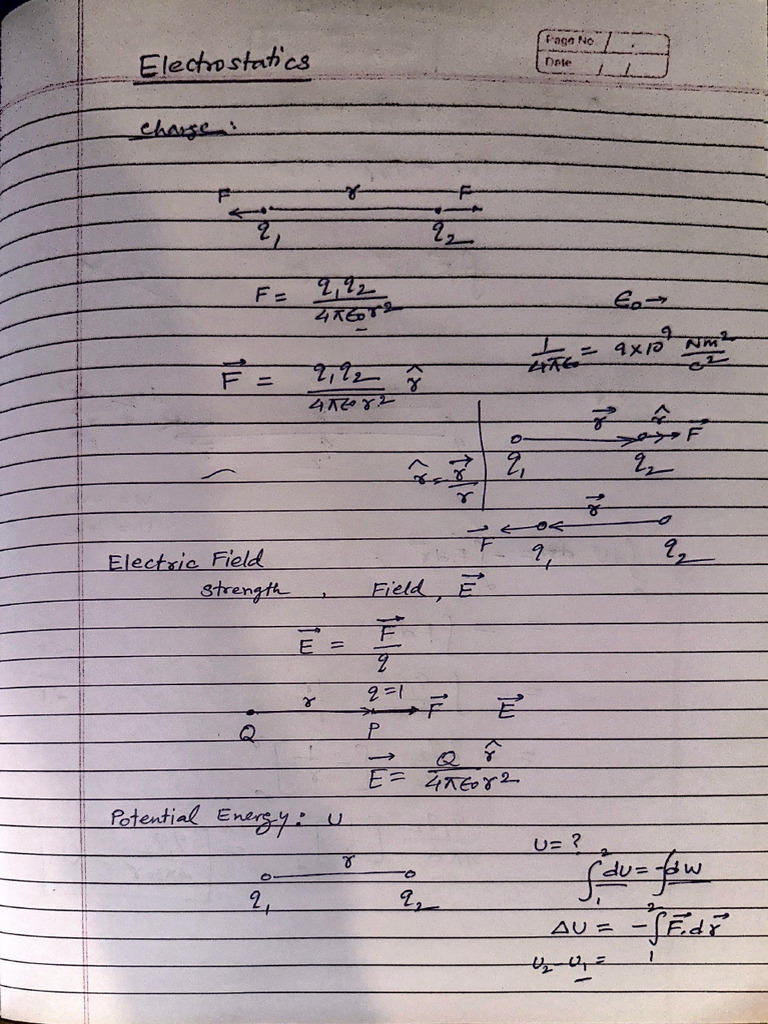 Page No 1.
Date / /
Electrostatics
charge:
F r F
q₁ q₂
F = q₁q₂ / 4πε₀r²
ε₀ →
1/4πε = 9×10⁹ Nm²/c²
F⃗ = q₁q₂ / 4πε₀r² r̂
r⃗ r̂ F⃗
q₁ q₂
r̂ = r⃗/r
r⃗
F⃗ q₁ q₂
Electric Field
strength, Field, E⃗
E⃗ = F⃗/q
r q=1 F⃗ E⃗
Q P
E⃗ = Q r̂ / 4πε₀r²
Potential Energy: U
U = ?
r
q₁ q₂
∫₁² dU = -∫dw
ΔU = -∫₁² F⃗.dr⃗
U₂-U₁ =